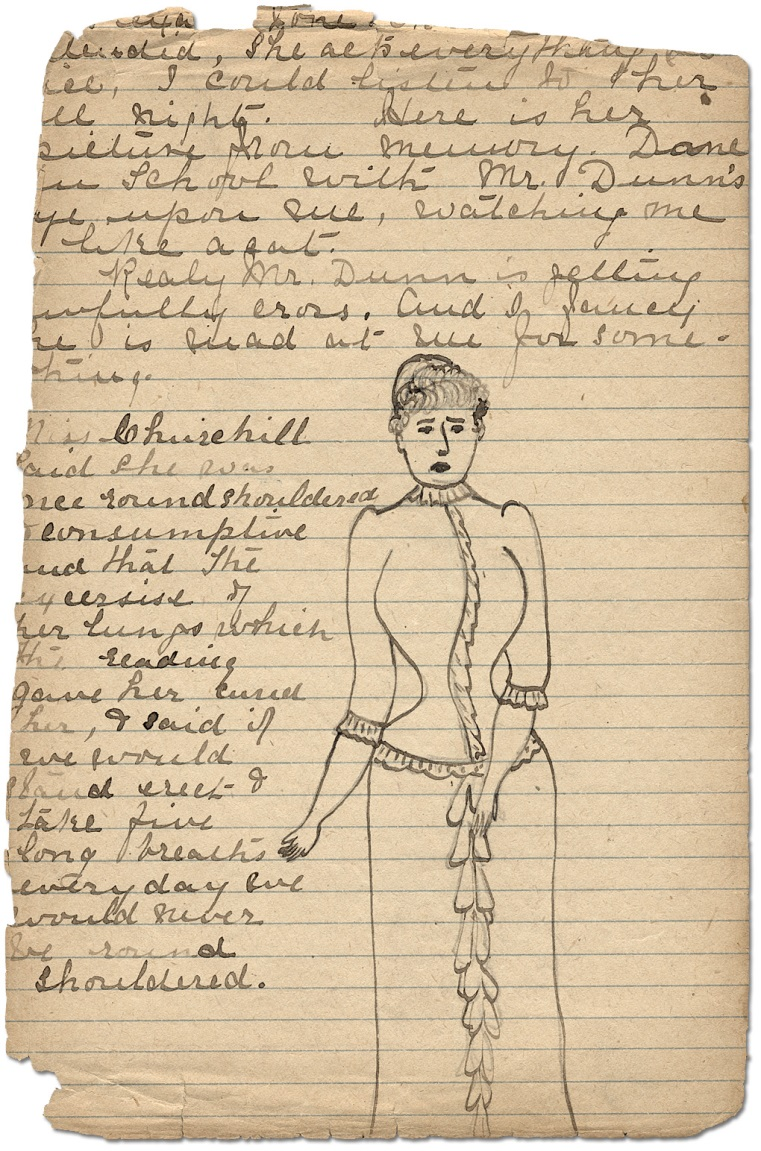 lendid, She acts everything so
ice, I could listen to her
ll night. Here is her
picture from memory. Done
in School with Mr. Dunn's
ye upon me, watching me
like a cat.
Realy Mr. Dunn is getting
wfully cross. And I fancy
he is mad at me for some-
thing.
Miss Churchill
said she was
once round shouldered
& consumptive
and that the
excersise of
her lungs which
the reading
gave her cured
her, & said if
we would
stand erect &
take five
long breaths
every day we
would never
be round
shouldered.